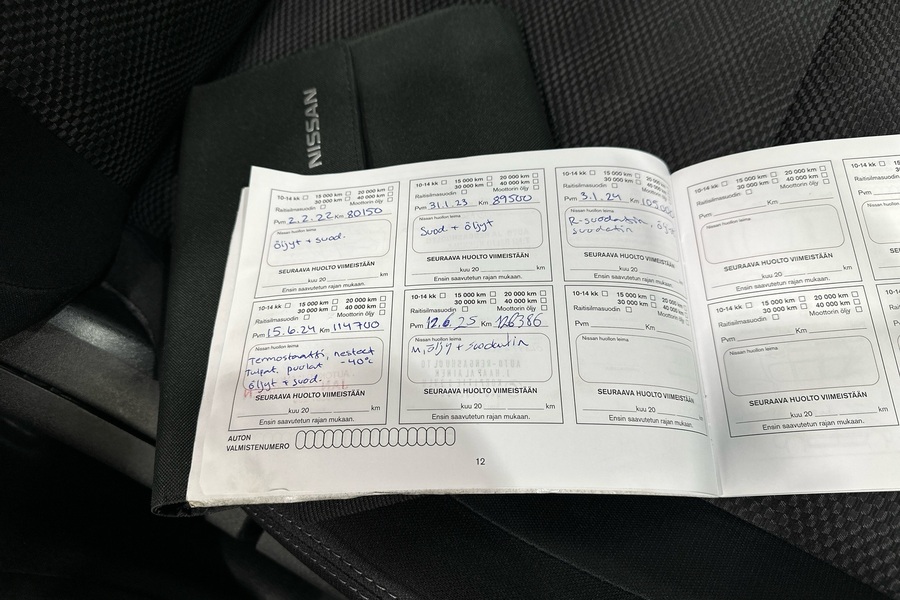 NISSAN
10-14 kk 15 000 km 20 000 km
30 000 km 40 000 km
Raitisilmasuodin Moottorin öljy
Pvm 2.2.22 Km 80150
Nissan huollon leima
öljyt + suod.
SEURAAVA HUOLTO VIIMEISTÄÄN
kuu 20 km
Ensin saavutetun rajan mukaan.
10-14 kk 15 000 km 20 000 km
30 000 km 40 000 km
Raitisilmasuodin Moottorin öljy
Pvm 31.1.23 Km 89500
Nissan huollon leima
Suod + öljyt
SEURAAVA HUOLTO VIIMEISTÄÄN
kuu 20 km
Ensin saavutetun rajan mukaan.
10-14 kk 15 000 km 20 000 km
30 000 km 40 000 km
Raitisilmasuodin Moottorin öljy
Pvm 3.1.24 Km
Nissan huollon leima
R-suodatin,
suodatin
SEURAAVA HUOLTO VIIMEISTÄÄN
kuu 20
Ensin saavutetun rajan mukaan.
10-14 kk 15 000 km 20 000 km
30 000 km 40 000 km
Raitisilmasuodin Moottorin öljy
Pvm 15.6.24 Km 114700
Nissan huollon leima
Termostaatti, nesteet
Tulpat, puolat -40°c
öljyt + suod.
SEURAAVA HUOLTO VIIMEISTÄÄN
kuu 20 km
Ensin saavutetun rajan mukaan.
10-14 kk 15 000 km 20 000 km
30 000 km 40 000 km
Raitisilmasuodin Moottorin öljy
Pvm 12.6.25 Km 126386
Nissan huollon leima
M, öljy + suodatin
SEURAAVA HUOLTO VIIMEISTÄÄN
kuu 20 km
Ensin saavutetun rajan mukaan.
10-14 kk 15 000 km 20 000 km
30 000 km 40 000 km
Raitisilmasuodin Moottorin öljy
Pvm Km
Nissan huollon leima
SEURAAVA HUOLTO VIIMEISTÄÄN
kuu 20
Ensin saavutetun rajan mukaan.
AUTON
VALMISTENUMERO
12
10-14 kk 15 000 km 20 000 km
30 000 km 40 000 km
Raitisilmasuodin Moottorin öljy
Pvm Km
Nissan huollon leima
SEURAAVA HUOLTO VIIMEISTÄÄN
kuu 20 km
Ensin saavutetun rajan mukaan.
10-14 kk
Raitisilmasuodin
Pvm
10-14 kk 15 000 km 20 000 km
30 000 km 40 000 km
Raitisilmasuodin Moottorin öljy
Pvm Km
Nissan huollon leima
SEURAAVA HUOLTO VIIMEISTÄÄN
kuu 20 km
Ensin saavutetun rajan mukaan.